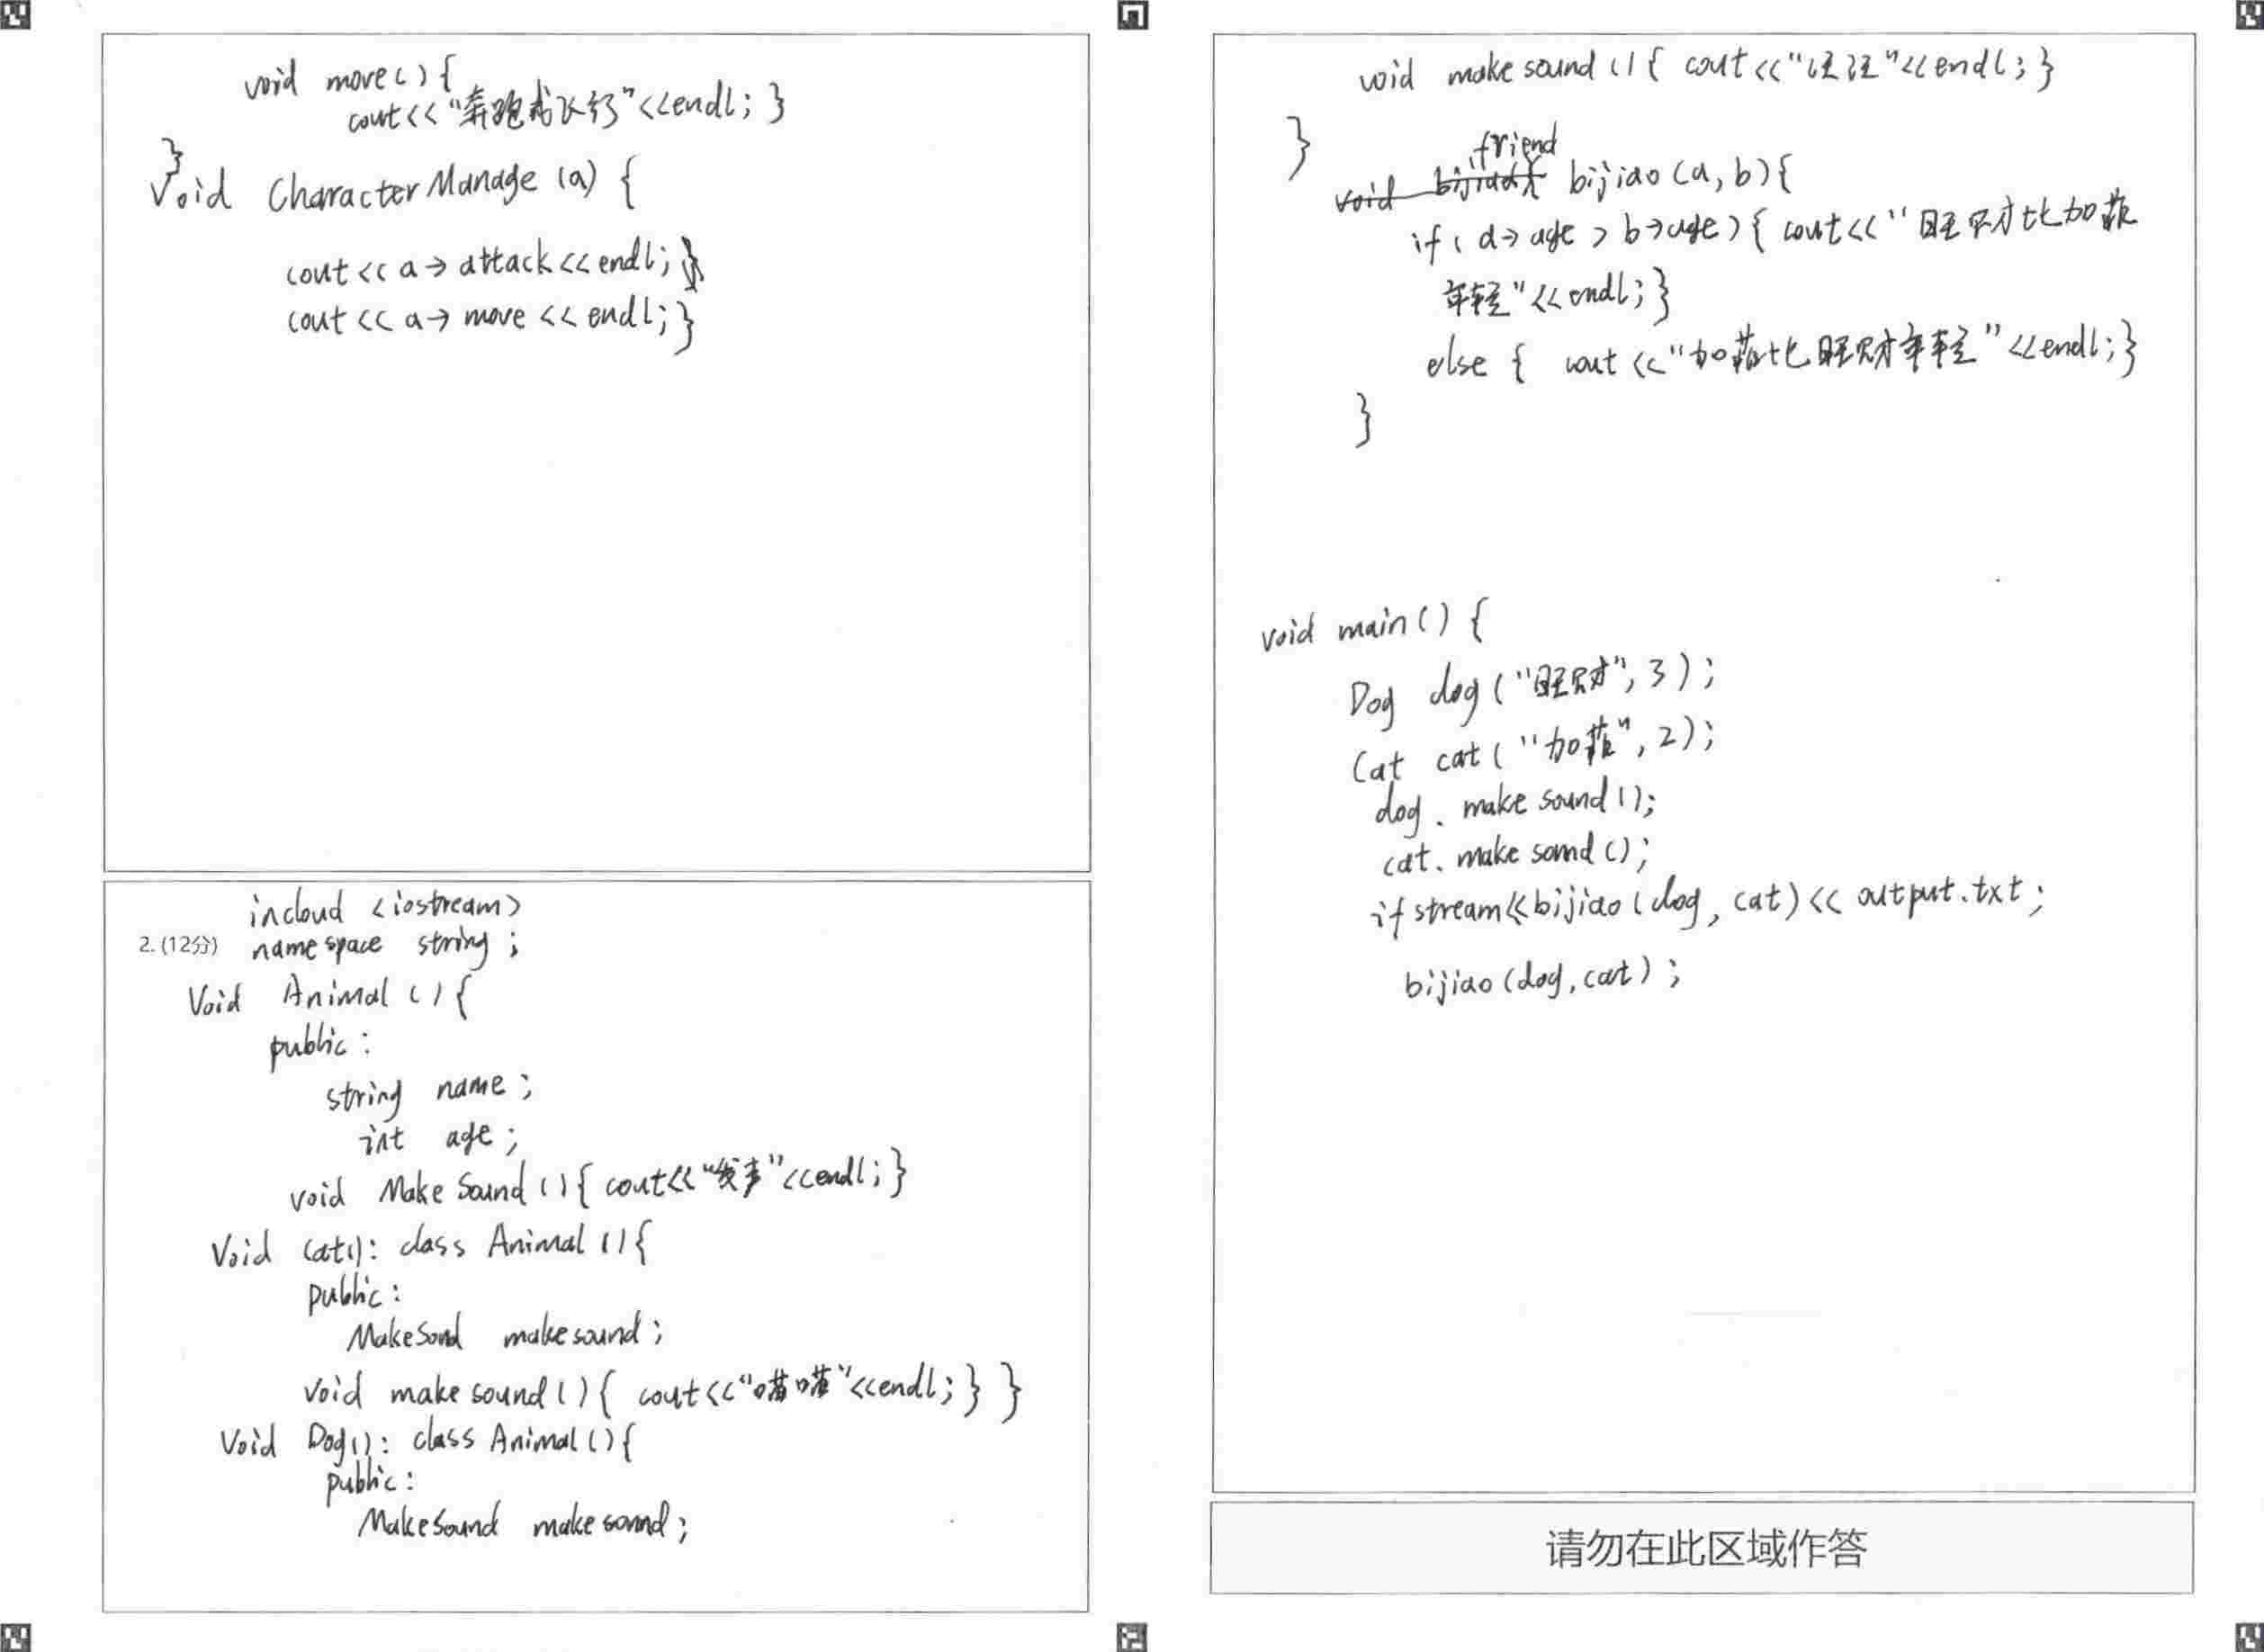 void move() {
cout << "奔跑或飞行" << endl; }
}
Void Character Manage (a) {
cout << a → attack << endl;
cout << a → move << endl; }
incloud <iostream>
2. (12分) name space string ;
Void Animal () {
public :
string name ;
int age ;
void Make Sound () { cout << "发声" << endl; }
Void Cat(): class Animal () {
public :
MakeSond makesound ;
void make sound () { cout << "喵喵" << endl; } }
Void Dog(): class Animal () {
public :
MakeSound make sound ;
void make sound () { cout << "汪汪" << endl; }
}
friend
void bijiao{ bijiao (a, b) {
if ( a → age > b → age ) { cout << "旺财比加菲
年轻" << endl; }
else { cout << "加菲比旺财年轻" << endl; }
}
void main () {
Dog dog ("旺财", 3) ;
Cat cat ("加菲", 2) ;
dog . make sound () ;
cat . make sound () ;
if stream << bijiao (dog, cat) << output.txt ;
bijiao (dog, cat) ;
请勿在此区域作答